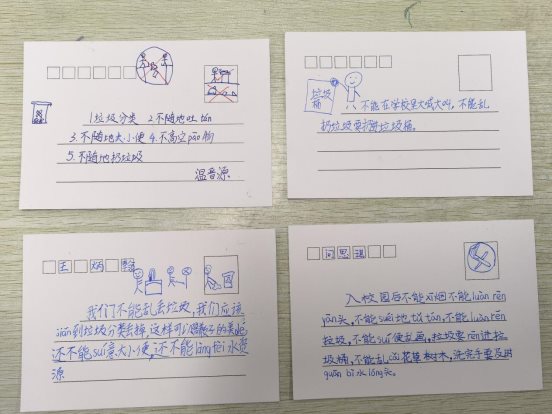 1垃圾分类 2不随地吐tán
3.不随地大小便 4.不高空pāo物
5.不随地扔垃圾
温音源
垃圾桶
不能在学校里大喊大叫,不能乱
扔垃圾要扔进垃圾桶。
王炳
我们不能乱丢垃圾,我们应该
jiǎn到垃圾分类去掉 这样可以
还不能suí意大小便,还不能làng fèi水资
源
问思
入校园后不能吸烟不能luàn rēng
yān头,不能suí地tǔ tán,不能luàn rēng
垃圾,不能suí便乱画,垃圾要rēng进垃
圾桶,不能乱cǎi花草树木,洗完手要及时
guān bì shuǐ lóng